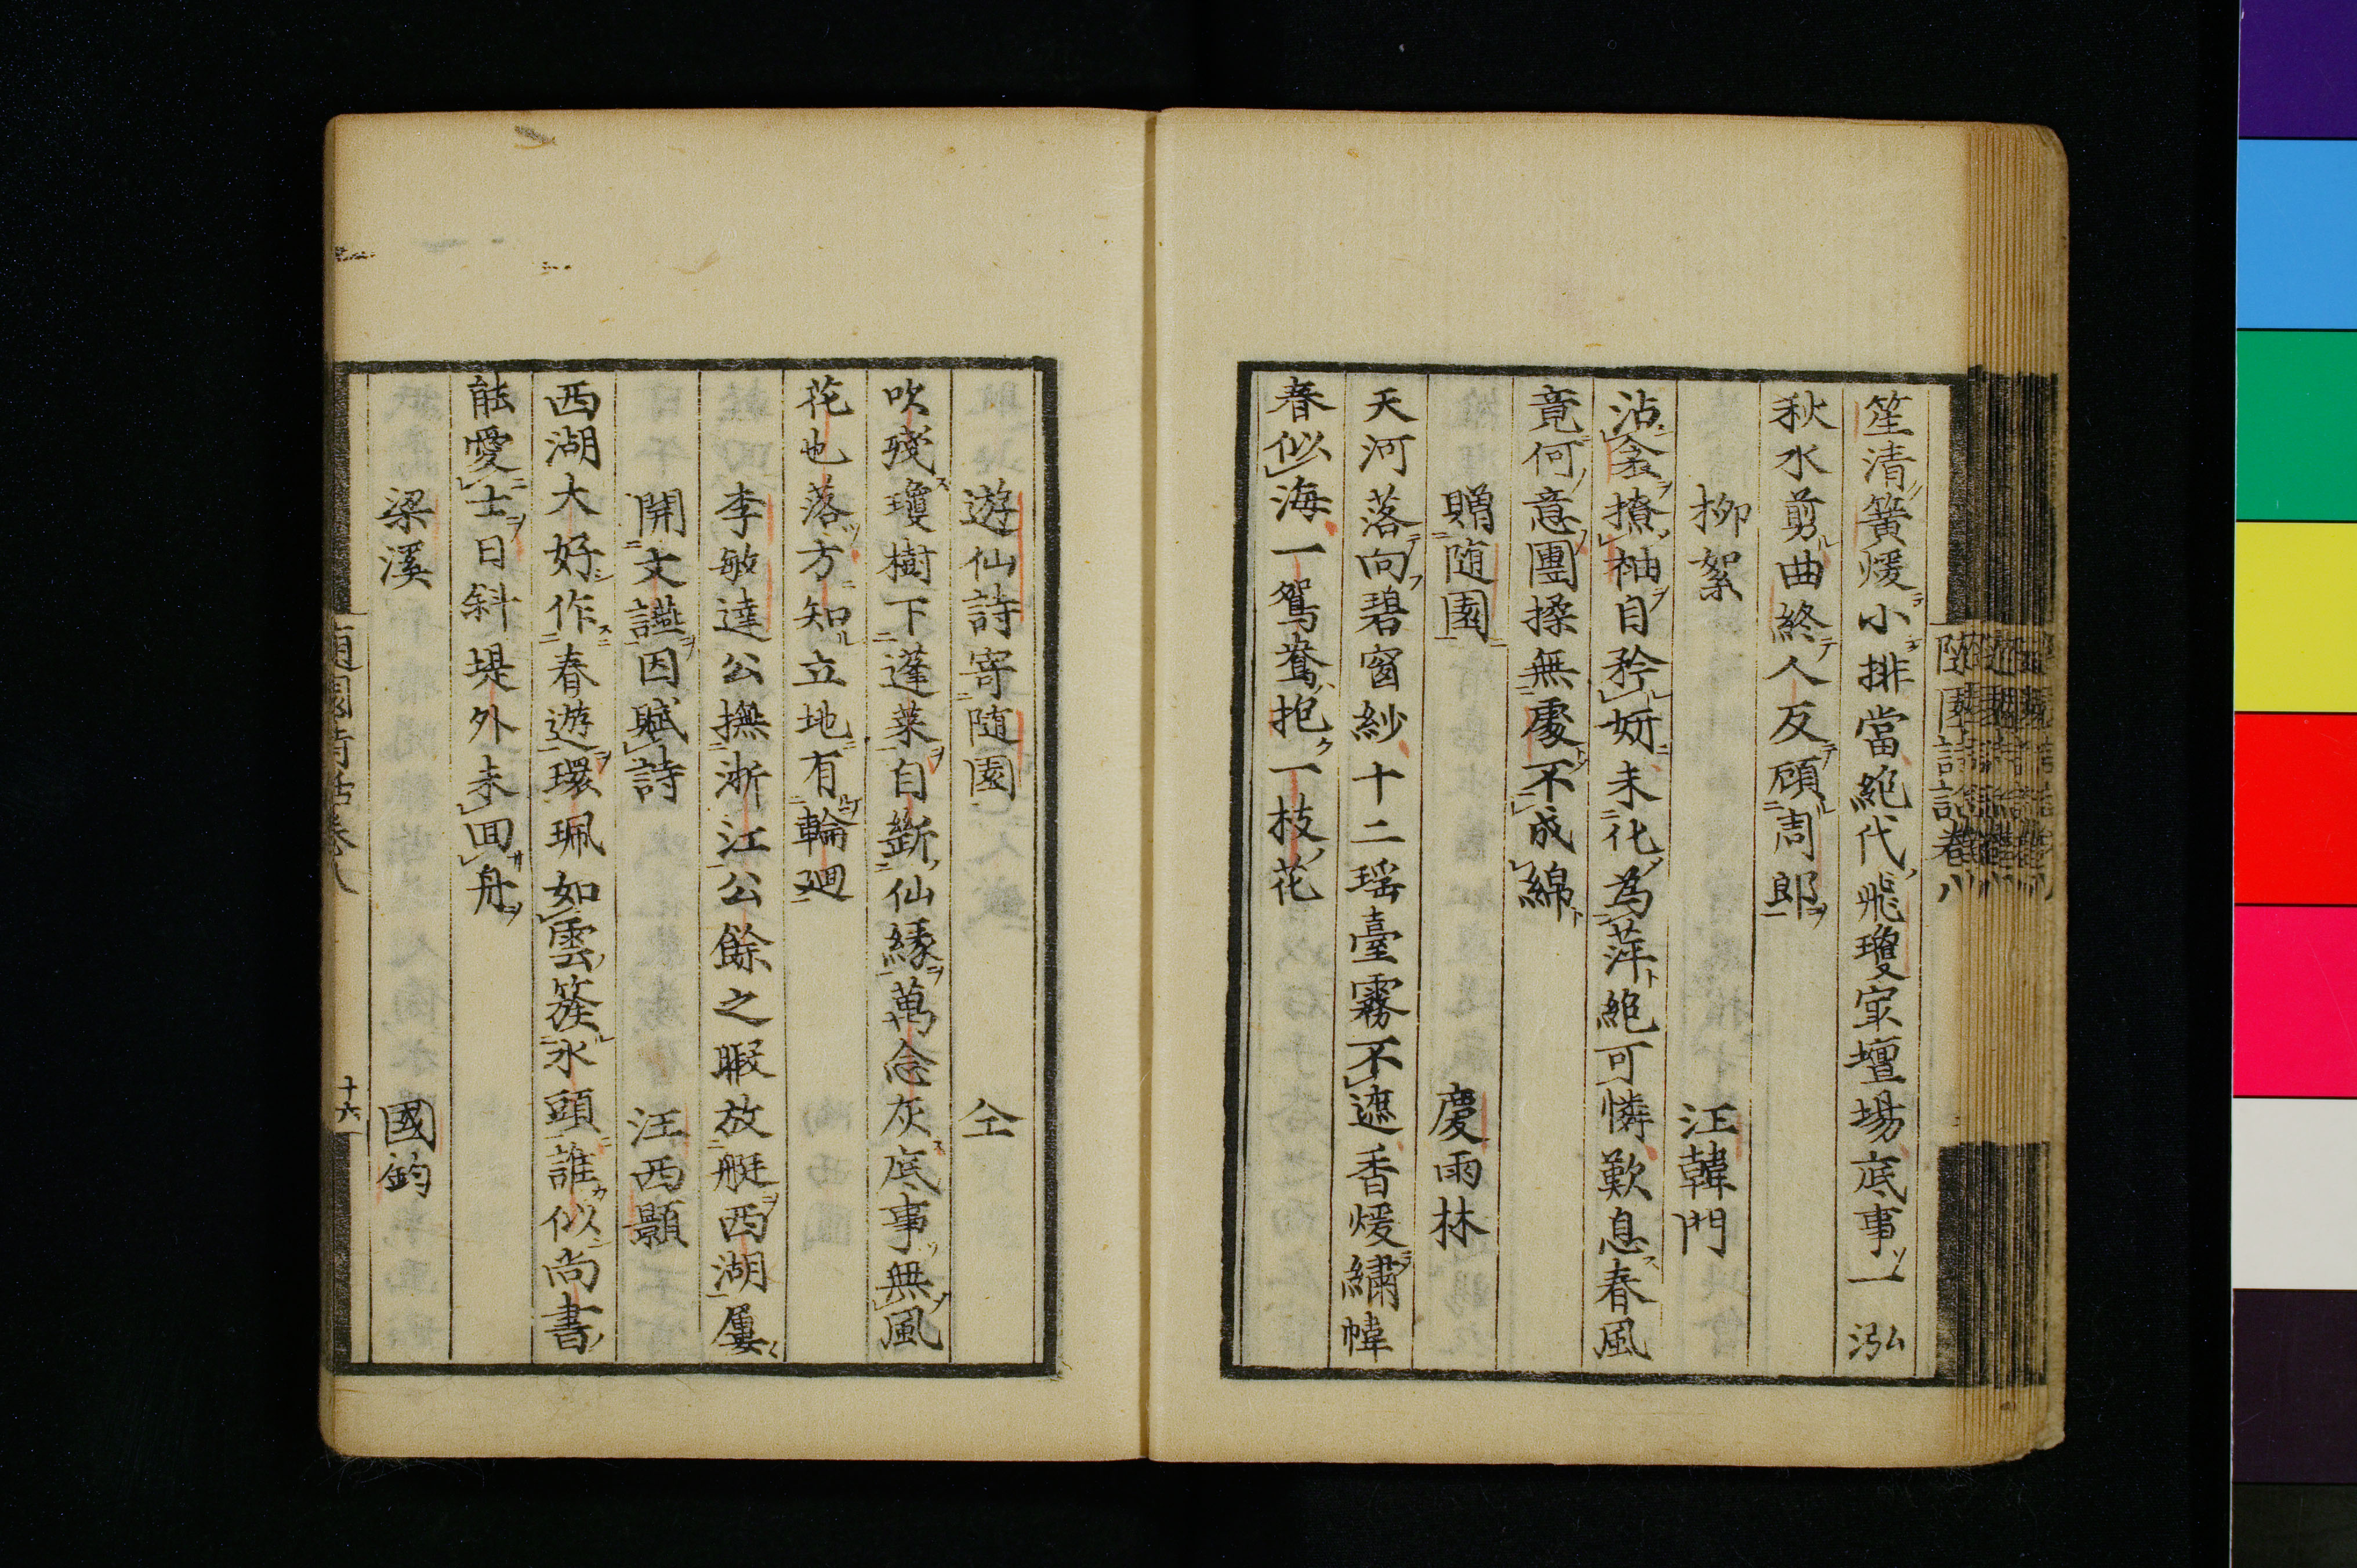 笙清簧煖小排當絶代飛瓊寂壇場底事一泓
秋水剪曲終人反顧周郎
柳絮　汪韓門
沾衾撩袖自矜妍未化為萍絶可憐歎息春風
竟何意團搡無處不成綿
贈随園　慶雨林
天河落向碧窗紗十二瑶臺霧不遮香煖繡幃
春似海一鴛鴦抱一枝花
遊仙詩寄随園　仝
吹殘瓊樹下蓬萊自斷仙緣萬念灰底事無風
花也落方知立地有輪廻
李敏達公撫浙江公餘之暇放艇西湖屢
開文讌因賦詩　汪西顥
西湖大好作春遊環珮如雲簇水頭誰似尚書
能愛士日斜堤外未回舟
梁溪　國鈞
随園詩話巻八
十六